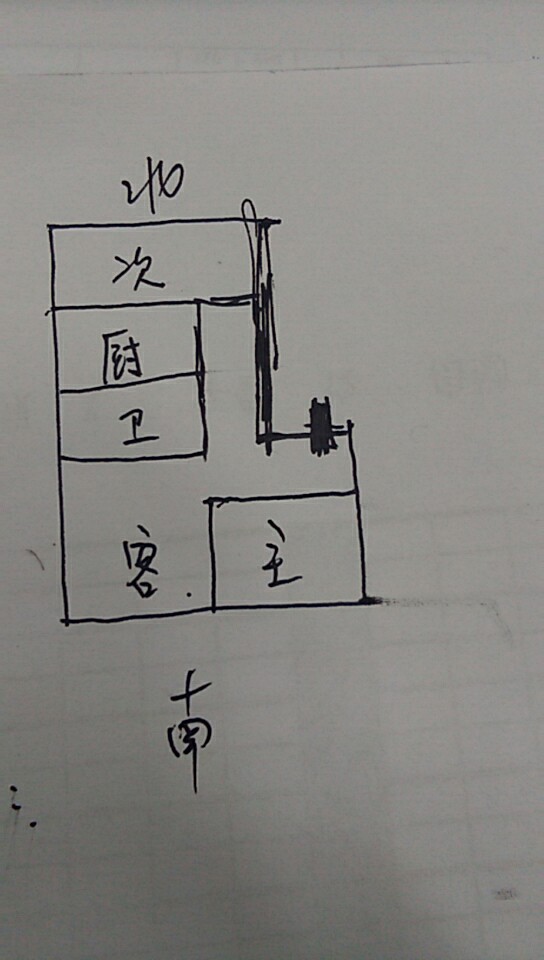 北
次
厨
卫
客
主
南